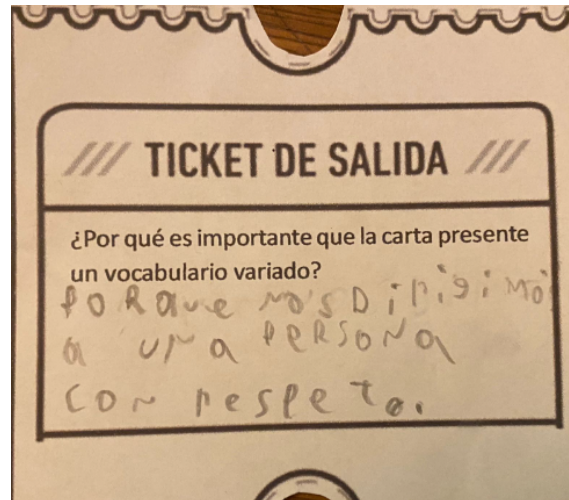 TICKET DE SALIDA
¿Por qué es importante que la carta presente
un vocabulario variado?
PORQUE NOS DiRigiMO
a UNa PERSONa
CON RespeTo.